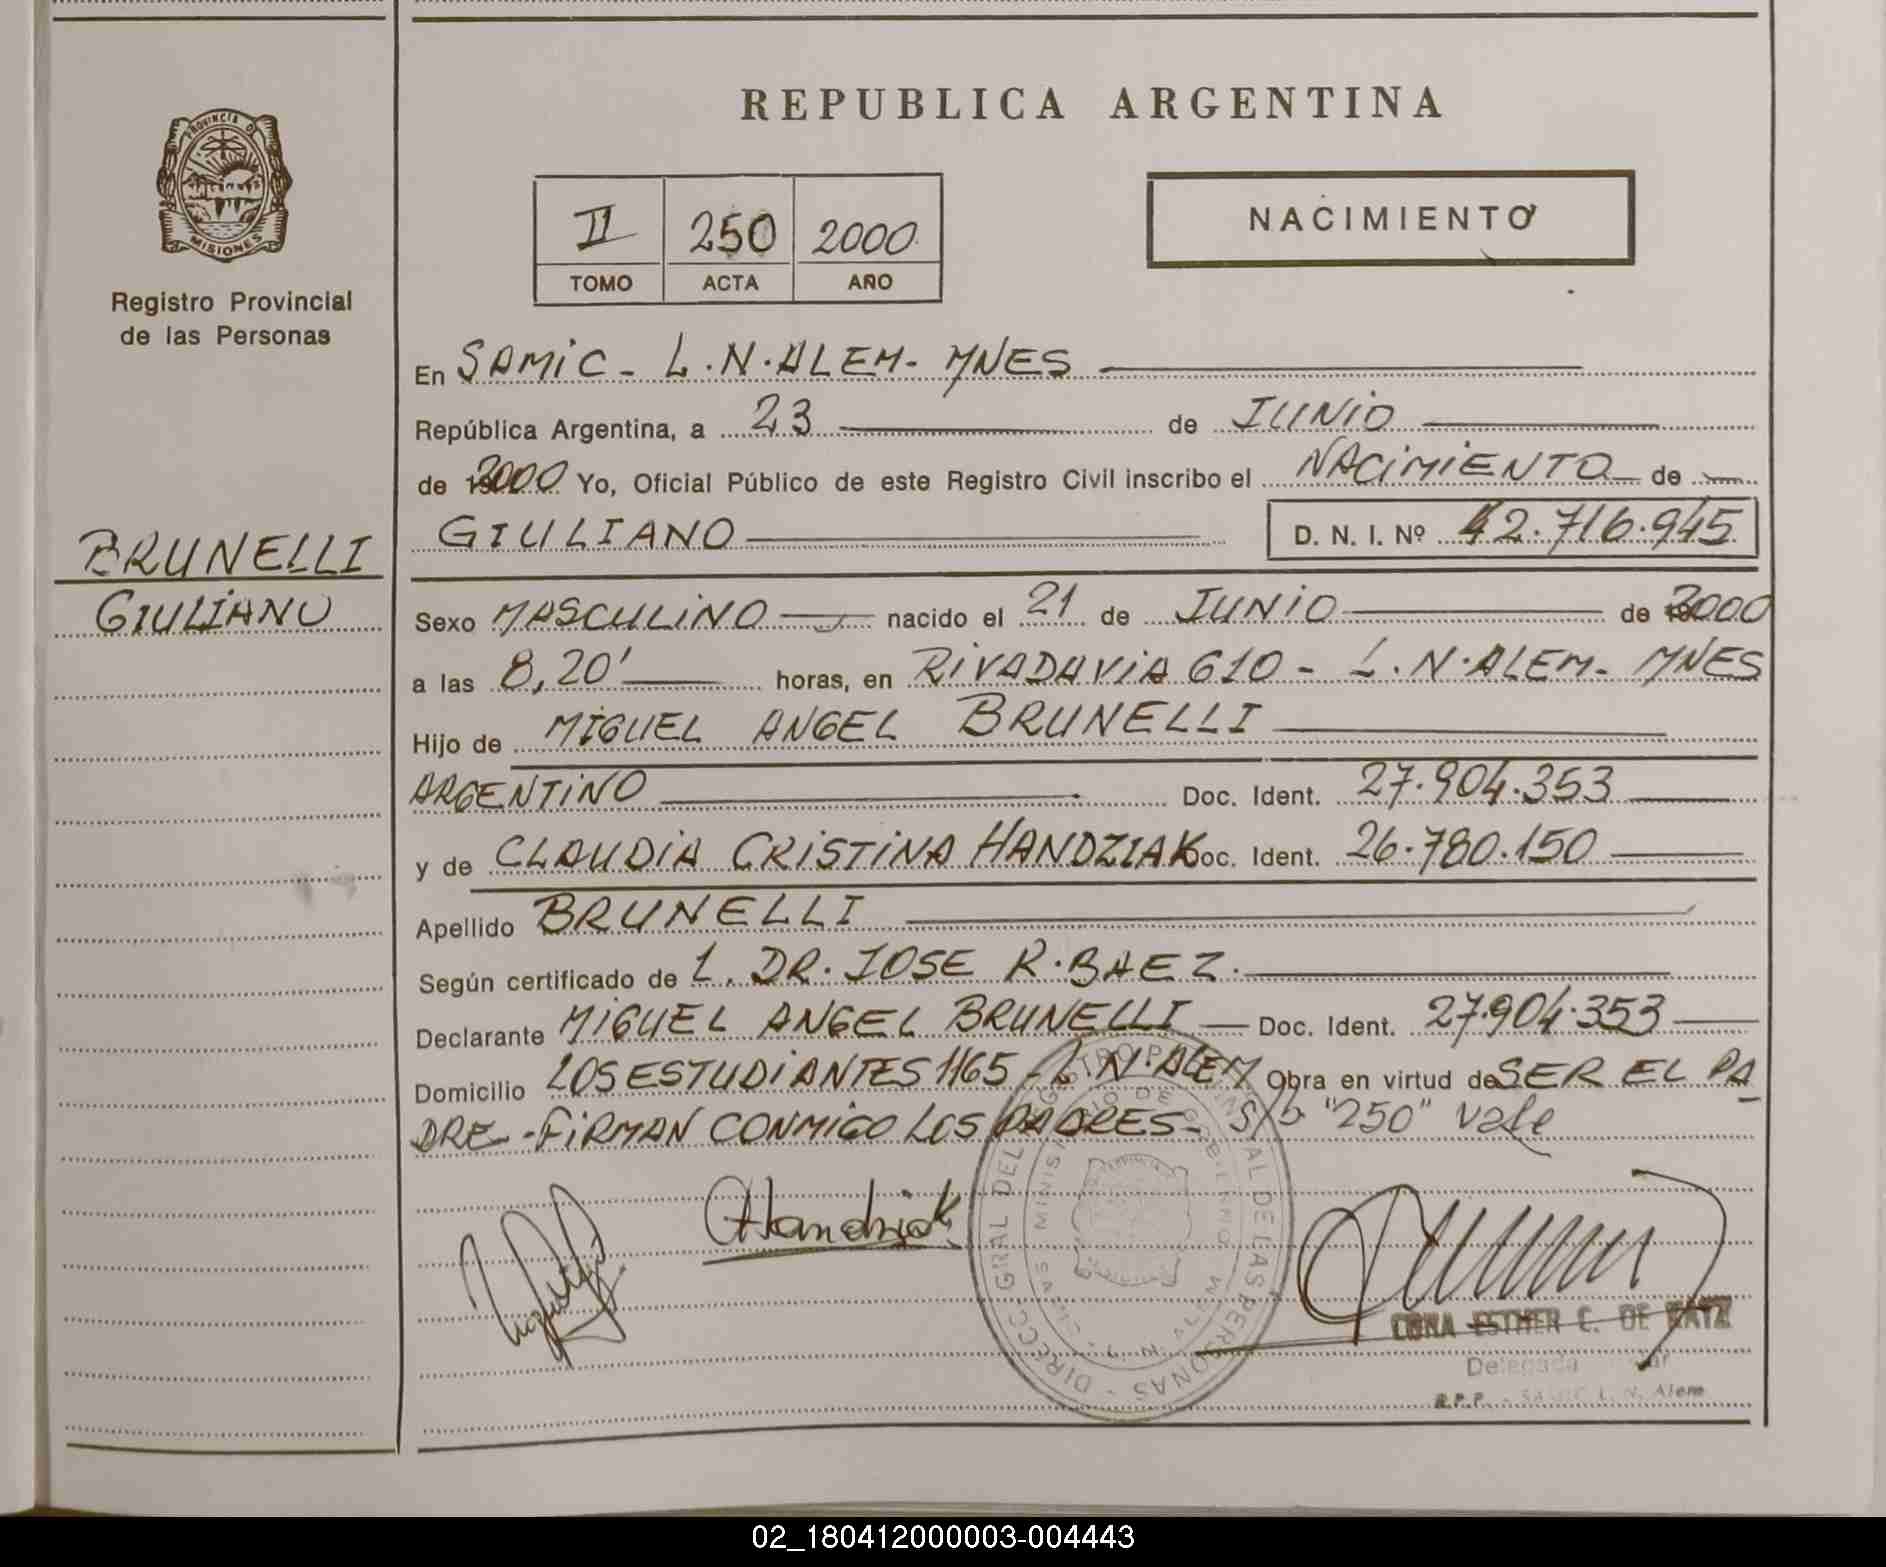 REPUBLICA ARGENTINA
PROVINCIA DE
MISIONES
Registro Provincial
de las Personas
II 250 2000
TOMO ACTA AÑO
NACIMIENTO
En SAMIC - L.N.ALEM - MNES
República Argentina, a 23 de JUNIO
de 2000 Yo, Oficial Público de este Registro Civil inscribo el NACIMIENTO de
GIULIANO D. N. I. Nº 42.716.945
BRUNELLI
GIULIANO
Sexo MASCULINO nacido el 21 de JUNIO de 2000
a las 8,20' horas, en RIVADAVIA 610 - L.N.ALEM - MNES
Hijo de MIGUEL ANGEL BRUNELLI
ARGENTINO Doc. Ident. 27.904.353
y de CLAUDIA CRISTINA HANDZIAK Doc. Ident. 26.780.150
Apellido BRUNELLI
Según certificado de L. DR. JOSE R. BAEZ.
Declarante MIGUEL ANGEL BRUNELLI Doc. Ident. 27.904.353
Domicilio LOS ESTUDIANTES 1165 - L.N.ALEM Obra en virtud de SER EL PA
DRE - FIRMAN CONMIGO LOS PADRES - S/b "250" vale
CHandziak
DIRECC. GRAL DEL REGISTRO PROVINCIAL DE LAS PERSONAS
L. N. ALEM
ESTHER C. DE KATZ
Delegada
R.P.P. - SAMIC L. N. Alem
02_180412000003-004443